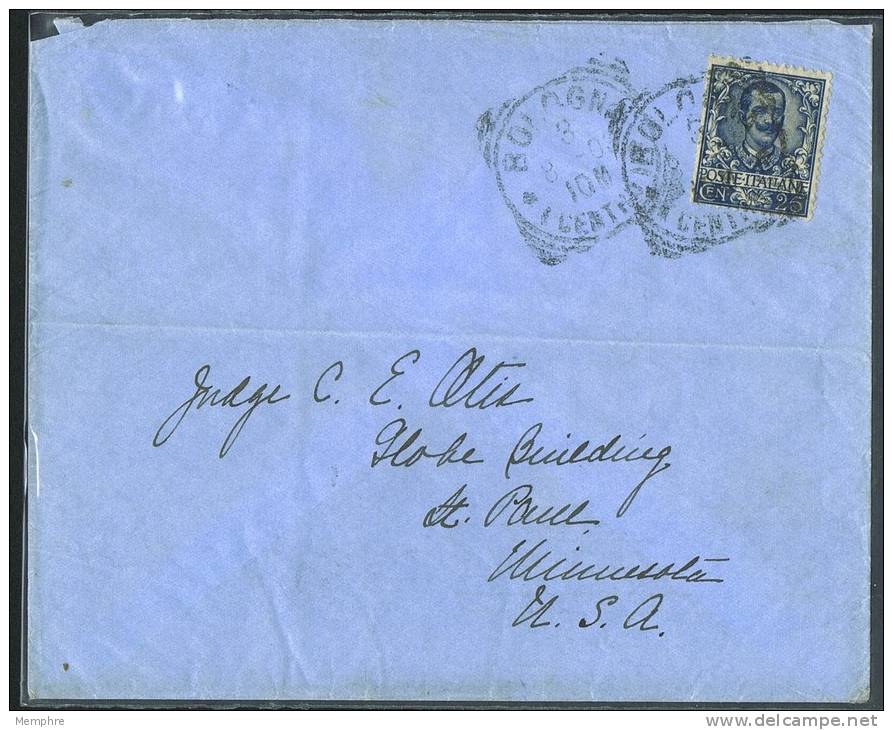 BOLOGNA
8
8
10M
* (CENTR
BOLO
* (CENT
POSTE·ITALIANE
CEN 25
Judge C. E. Otis
Globe Building
St. Paul
Minnesota
U. S. A.
Memphre
www.delcampe.net